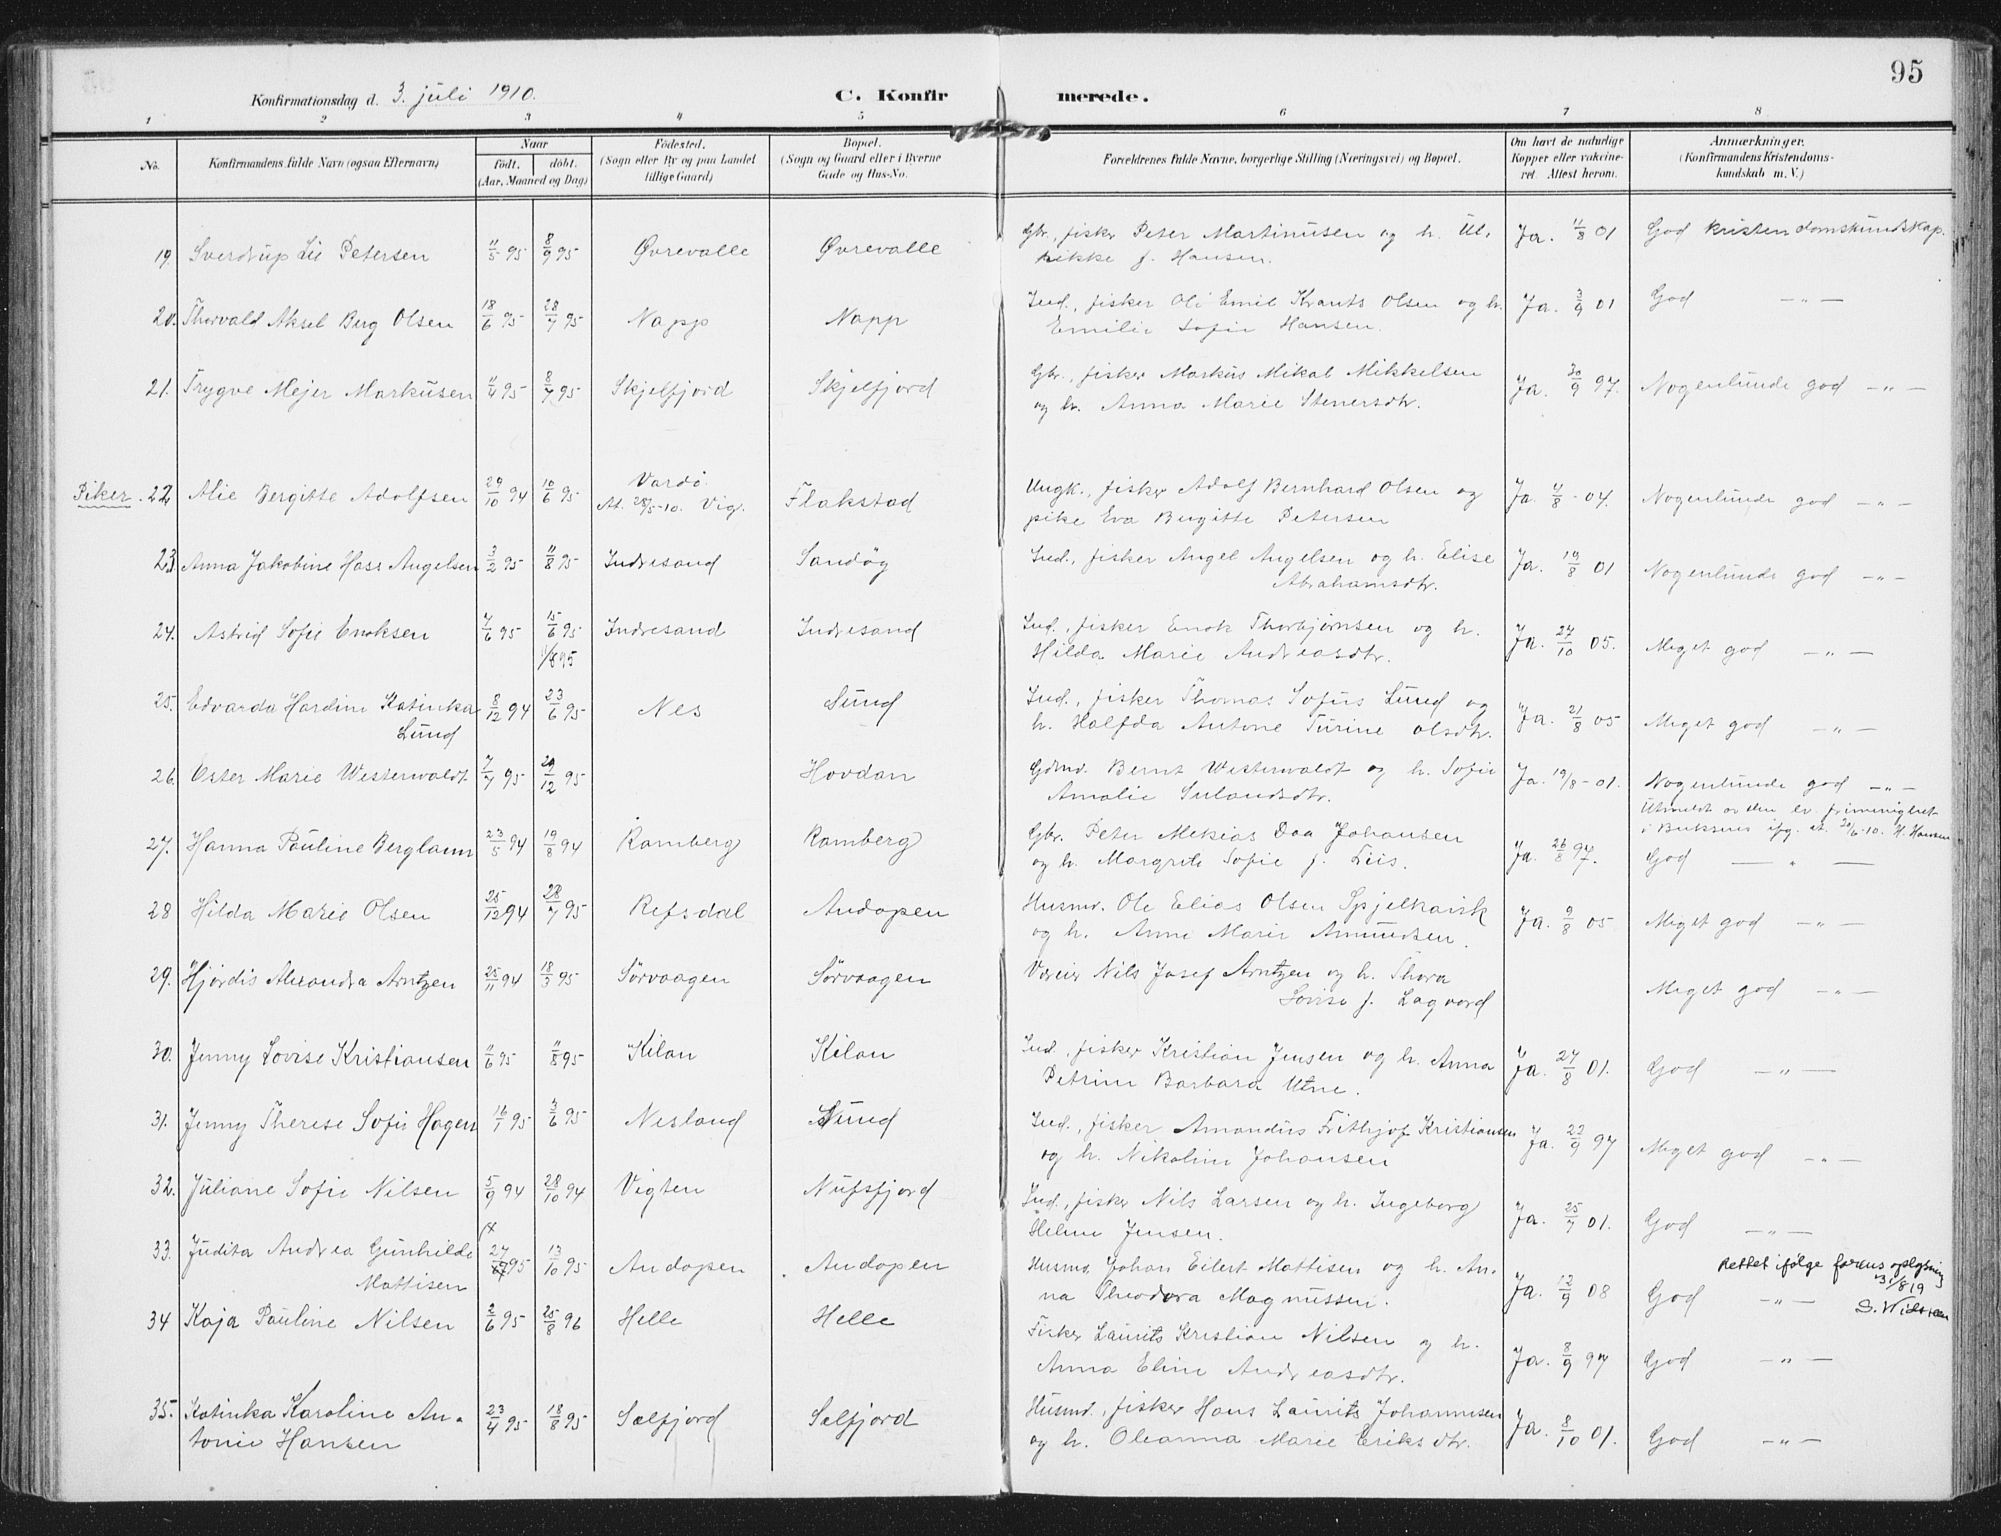 95
Konfirmationsdag d. 3. juli 1910.
C. Konfirmerede.
1 2 3 4 5 6 7 8
No. Konfirmandens fulde Navn (ogsaa Efternavn) Naar födt. döbt. (Aar, Maaned og Dag) Födested. (Sogn eller By og paa Landet tillige Gaard) Bopæl. (Sogn og Gaard eller i Byerne Gade og Hus-No. Forældrenes fulde Navne, borgerlige Stilling (Næringsvei) og Bopæl. Om havt de naturlige Kopper eller vakcineret. Attest herom. Anmærkninger. (Konfirmandens Kristendomskundskab m. V.)
19. Sverdrup Lii Petersen 11/5 95 8/9 95 Øvrevalle Øvrevalle Gbr., fisker Peter Martinusen og h. Ul,
rikke f. Hansen. Ja. 11/8 01 God kristendomskundskap.
20. Thorvald Aksel Berg Olsen 18/6 95 28/7 95 Napp Napp Ind., fisker Ole Emil Krants Olsen og h.
Emilie Sofie Hansen. Ja. 3/9 01 God — " —
21. Trygve Mejer Markusen 11/4 95 8/7 95 Skjelfjord Skjelfjord Gbr., fisker Markus Mikal Mikkelsen
og h. Anna Marie Stenersdtr. Ja. 30/9 97. Nogenlunde god — " —
Piker. 22. Alie Bergitte Adolfsen 29/10 94 10/6 95 Vardö.
At. 28/5-10. Vig. Flakstad Ungk., fisker Adolf Bernhard Olsen og
pike Eva Birgitte Petersen Ja. 4/8 - 04. Nogenlunde god — " —
23. Anna Jakobine Hass Angelsen 3/2 95 11/8 95 Indresand Sandøg Ind., fisker Angel Angelsen og h. Elise
Abrahamsdtr. Ja. 19/8 01 Nogenlunde god — " —
24. Astrid Sofie Enoksen 7/6 95 15/6 95 Indresand Indresand Ind., fisker Enok Thorbjørnsen og h.
1/8 95 Hilda Marie Andreasdtr. Ja. 27/10 05. Meget god — " —
25. Edvarda Hardine Katinka
Lund 8/12 94 23/6 95 Nes Sund Ind., fisker Thomas Sofus Lund og
h. Halfda Antone Turine Olsdtr. Ja. 21/8 05 Meget god — " —
26. Oster Marie Westerwaldt 7/7 95 29/12 95 Hovdan Gdmd. Bernt Westerwaldt og h. Sofie
Amalie Sulandsdtr. Ja. 19/8 - 01. Nogenlunde god — " —
Utmeldt av den ev. frimenighet
i Buksnes ifg. at. 20/6-10. H. Hansen
27. Hanna Pauline Berglaun 23/5 94 19/8 94 Ramberg Ramberg Gbr. Peter Mekias Daa Johansen
og h. Margrete Sofie f. Friis. Ja. 26/8 97. God — " —
28 Hilda Marie Olsen 25/12 94 28/7 95 Refsdal Andopen Husmd. Ole Elias Olsen Spjelkavik
og h. Anne Marie Amundsen. Ja. 9/8 05 Meget god — " —
29. Hjördis Alexandra Arntzen 25/11 94 18/3 95 Sörvaagen Sörvaagen Væreier Nils Josef Arntzen og h. Thora
Lovise f. Lagvord Meget god — " —
30. Jenny Lovise Kristiansen 11/6 95 11/8 95 Kilan Kilan Ind., fisker Kristian Jensen og h. Anna
Petrine Barbara Utne. Ja. 27/8 01. God — " —
31. Jenny Therese Sofie Hagen 16/1 95 3/6 95 Nesland Sund Ind., fisker Amandus Frithjof Kristiansen
og h. Nikoline Johansen Ja. 22/9 97 Meget god — " —
32. Juliane Sofie Nilsen 5/9 94 28/10 94 Vigten Nufsfjord Ind., fisker Nils Larsen og h. Ingeborg
Helene Jensen. Ja. 25/7 01. God — " —
33. Judita Andrea Gunhilde
Mattisen 27/7 95 13/10 95 Andopen Andopen Husmd. Johan Eilert Mattisen og h. An-
na Theodora Magnussen. Ja. 12/9 08 God — " —
Rettet ifølge farens oplysning
31/8 19
34 Kaja Pauline Nilsen 2/6 95 25/8 96 Helle Helle Fisker Laurits Kristian Nilsen og h.
Anna Eline Andreasdtr. Ja. 8/9 97 God — " —
35. Katinka Karoline An-
tonie Hansen 23/4 95 18/8 95 Selfjord Selfjord Husmd., fisker Hans Laurits Johannesen
og h. Oleanna Marie Eriksdtr. Ja. 8/10 01. God — " —